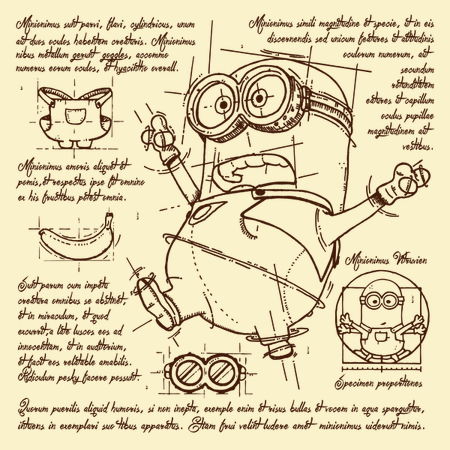 Minionimus sunt parvi, flavi, cylindricus, unum
aut duos oculos habentem creatoris. Minionimus
nibus metallum gerunt goggles, accommo
numerus eorum oculos, et hyacintho overall.
Minionimus simili magnitudine et specie, et in eis
discernendis sed unicum features et altitudinis
oculorum numerum, aut
secundum
extenditatem
extares et capillum
oculus pupillae
magnitudinem aut
vestibus.
Minionimus amoris aliquet et
pomis, et respectus ipse fit omnino
ex his fructibus potest omnia.
Sunt parum cum impetu
creatura omnibus se abstinet,
et in miraculum, et quod
excurrit; a tus luscos eos ad
innocentiam, et in auditorium,
et facit eos relatable amabilis.
Ridiculum pesky facere possunt.
Minionimus Vitruvien
Specimen proportiones
Quorum puerilis aliquid humoris, si non inepta, exemple enim et risus bullas et rovem in aqua sparguntur,
intuens in exemplari suc tibus apparatus. Etiam fru velint ludere amet minionimus viderunt nimis.